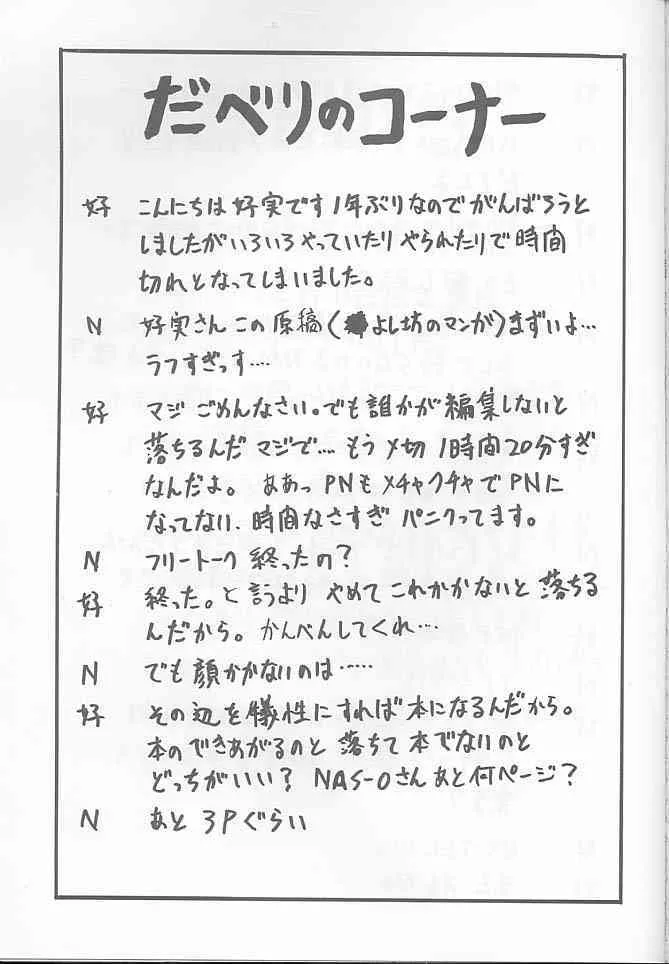 だべりのコーナー
好 こんにちは好実です1年ぶりなのでがんばろうと
しましたがいろいろやっていたりやられたりで時間
切れとなってしまいました。
N 好実さんこの原稿(よし坊のマンガ)まずいよ…
ラフすぎっす…
好 マジごめんなさい。でも誰かが編集しないと
落ちるんだマジで…もう〆切1時間20分すぎ
なんだよ。ああっPNもメチャクチャでPNに
なってない、時間なさすぎパニクってます。
N フリートーク終ったの?
好 終った。と言うよりやめてこれかかないと落ちる
んだから。かんべんしてくれ…
N でも顔かかないのは……
好 その辺を犠牲にすれば本になるんだから。
本のできあがるのと落ちて本でないのと
どっちがいい? NAS-Oさんあと何ページ?
N あと3Pぐらい